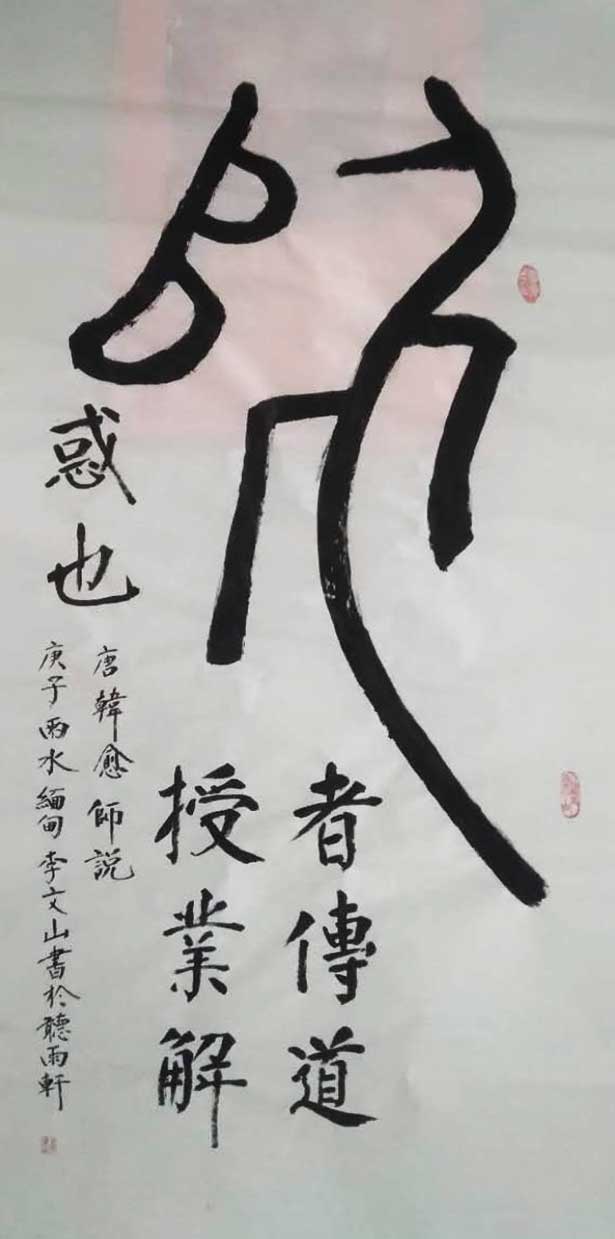 師
者傳道
授業解
惑也
唐韓愈師說
庚子雨水緬甸李文山書於聽雨軒